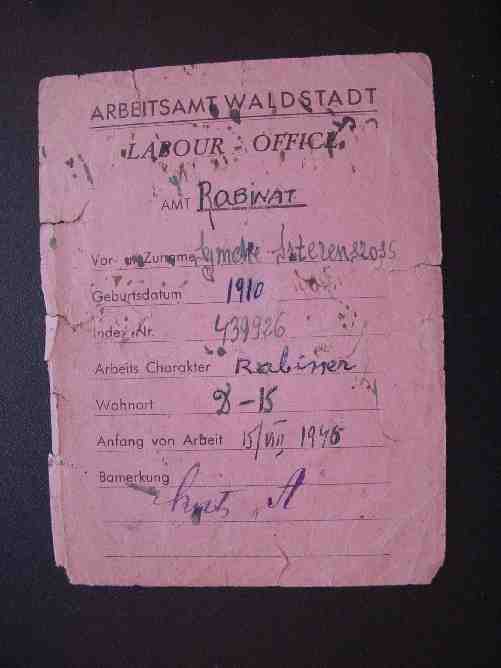 ARBEITSAMT WALDSTADT
LABOUR - OFFICE
AMT RABINAT
Vor- u. Zuname Symche
Geburtsdatum 1910
Index Nr. 439926
Arbeits Charakter Rabiner
Wohnort D-15
Anfang von Arbeit 15/VIII 1946
Bamerkung A